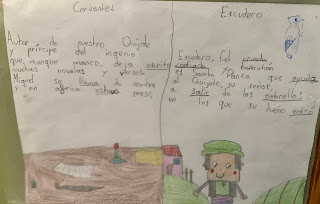 Cervantes
Autor de nuestro Quijote
y príncipe del ingenio
que, aunque manco, deja escrito
muchas novelas y versos.
Miguel se llama de nombre
y en africa estuvo preso.
Escudero
Escudero, fiel criado
es Sancho Panza que ayuda
al Quijote, su señor,
a salir de los embrollos
en los que su dueño entró